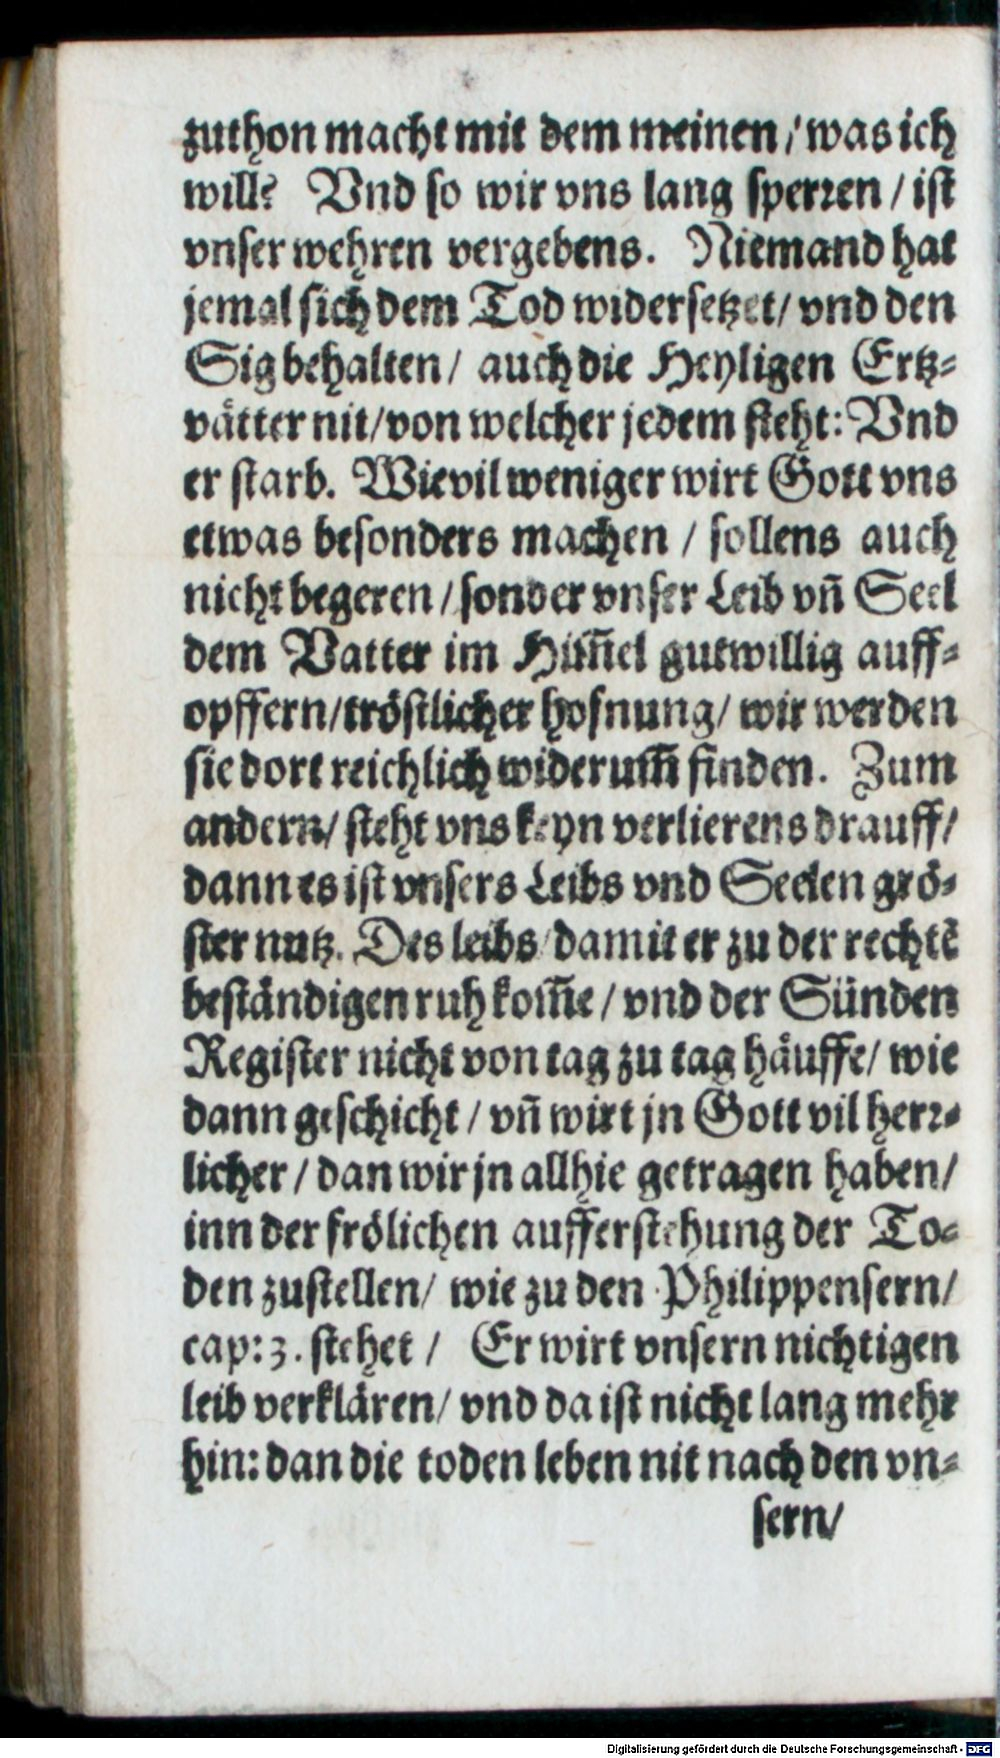 zuthon macht mit dem meinen / was ich
will? Vnd so wir vns lang sperren / ist
vnser wehren vergebens. Niemand hat
jemal sich dem Tod widersetzet / vnd den
Sig behalten / auch die Heyligen Ertz-
vätter nit / von welcher jedem steht: Vnd
er starb. Wievil weniger wirt Gott vns
etwas besonders machen / sollens auch
nicht begeren / sonder vnser Leib vn̄ Seel
dem Vatter im Him̄el gutwillig auff-
opffern / tröstlicher hofnung / wir werden
sie dort reichlich widerum̄ finden. Zum
andern / steht vns keyn verlierens drauff /
dann es ist vnsers Leibs vnd Seelen grö-
ster nutz. Des leibs / damit er zu der rechtē
beständigen ruh kom̄e / vnd der Sünden
Register nicht von tag zu tag häuffe / wie
dann geschicht / vn̄ wirt jn Gott vil herr-
licher / dan wir jn allhie getragen haben /
inn der frölichen aufferstehung der To-
den zustellen / wie zu den Philippensern /
cap: 3. stehet / Er wirt vnsern nichtigen
leib verklären / vnd da ist nicht lang mehr
hin: dan die toden leben nit nach den vn-
sern /
Digitalisierung gefördert durch die Deutsche Forschungsgemeinschaft - DFG